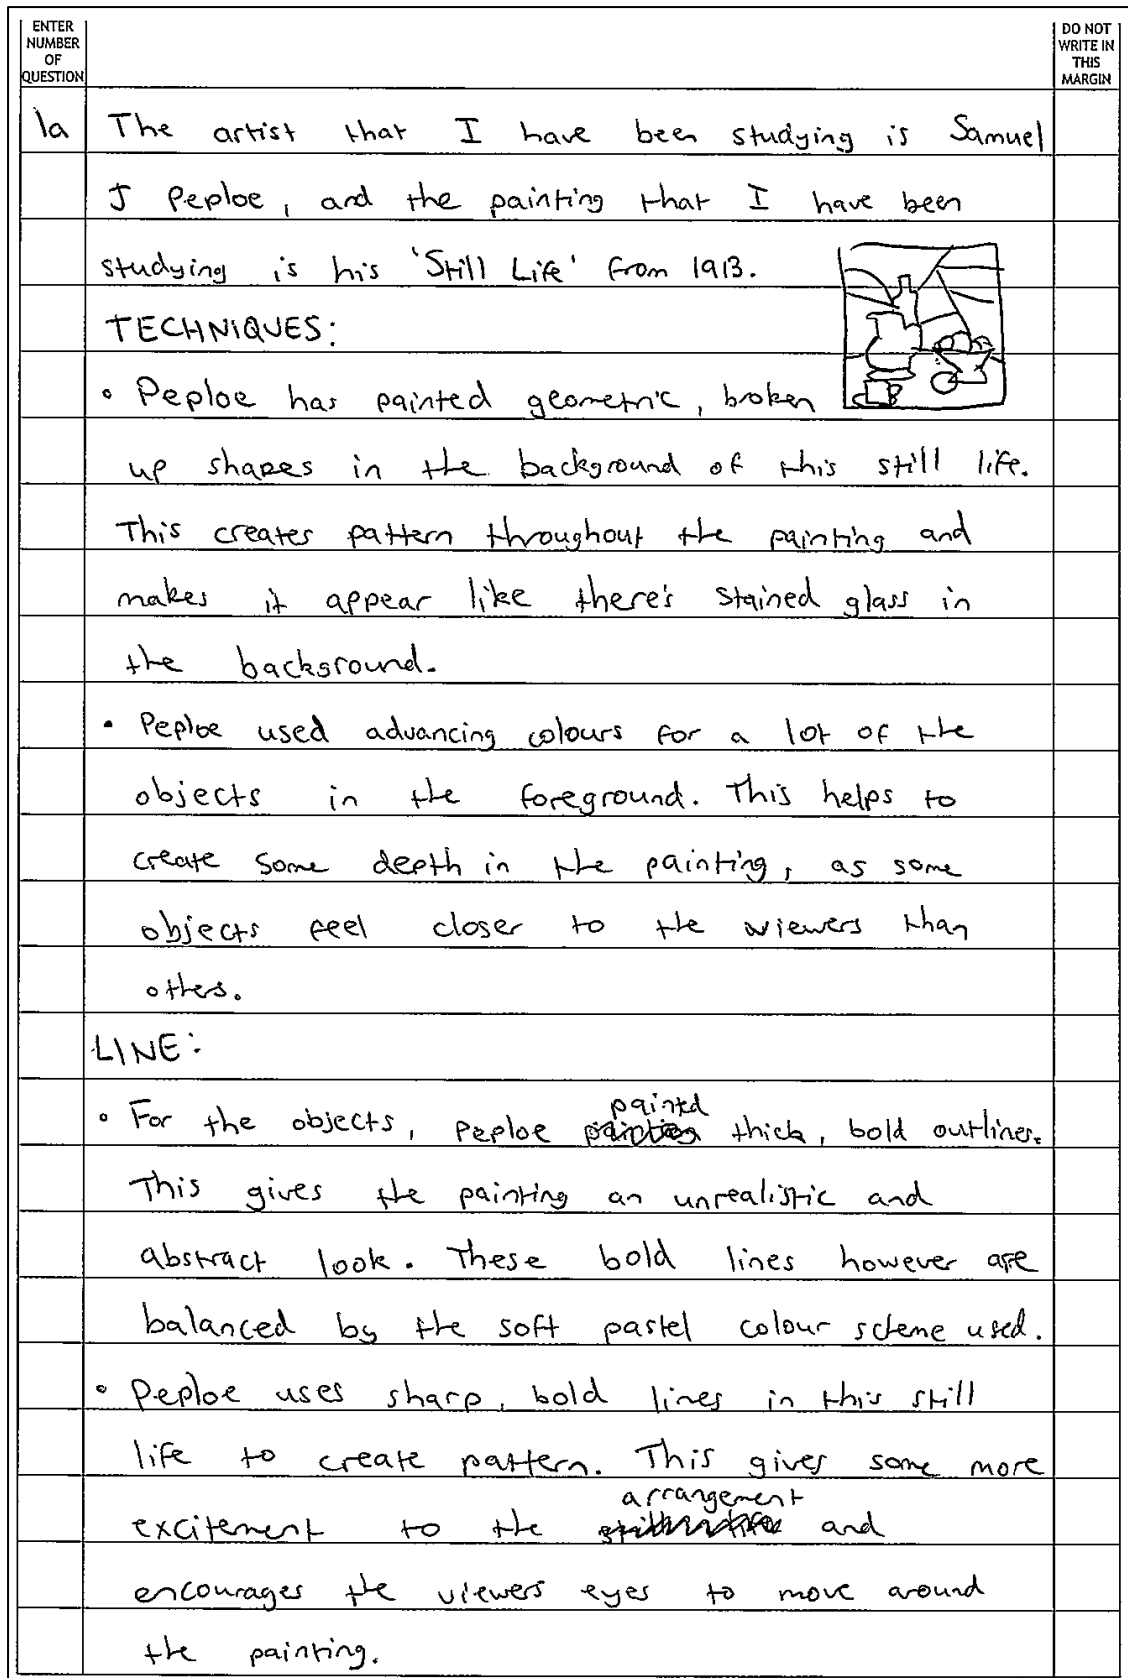 ENTER
NUMBER
OF
QUESTION
DO NOT
WRITE IN
THIS
MARGIN
1a The artist that I have been studying is Samuel
J Peploe, and the painting that I have been
studying is his 'Still Life' from 1913.
TECHNIQUES:
• Peploe has painted geometric, broken
up shapes in the background of this still life.
This creates pattern throughout the painting and
makes it appear like there's stained glass in
the background.
• Peploe used advancing colours for a lot of the
objects in the foreground. This helps to
create some depth in the painting, as some
objects feel closer to the viewers than
others.
LINE:
• For the objects, Peploe painted thick, bold outlines.
This gives the painting an unrealistic and
abstract look. These bold lines however are
balanced by the soft pastel colour scheme used.
• Peploe uses sharp, bold lines in this still
life to create pattern. This gives some more
excitement to the arrangement and
encourages the viewers eyes to move around
the painting.